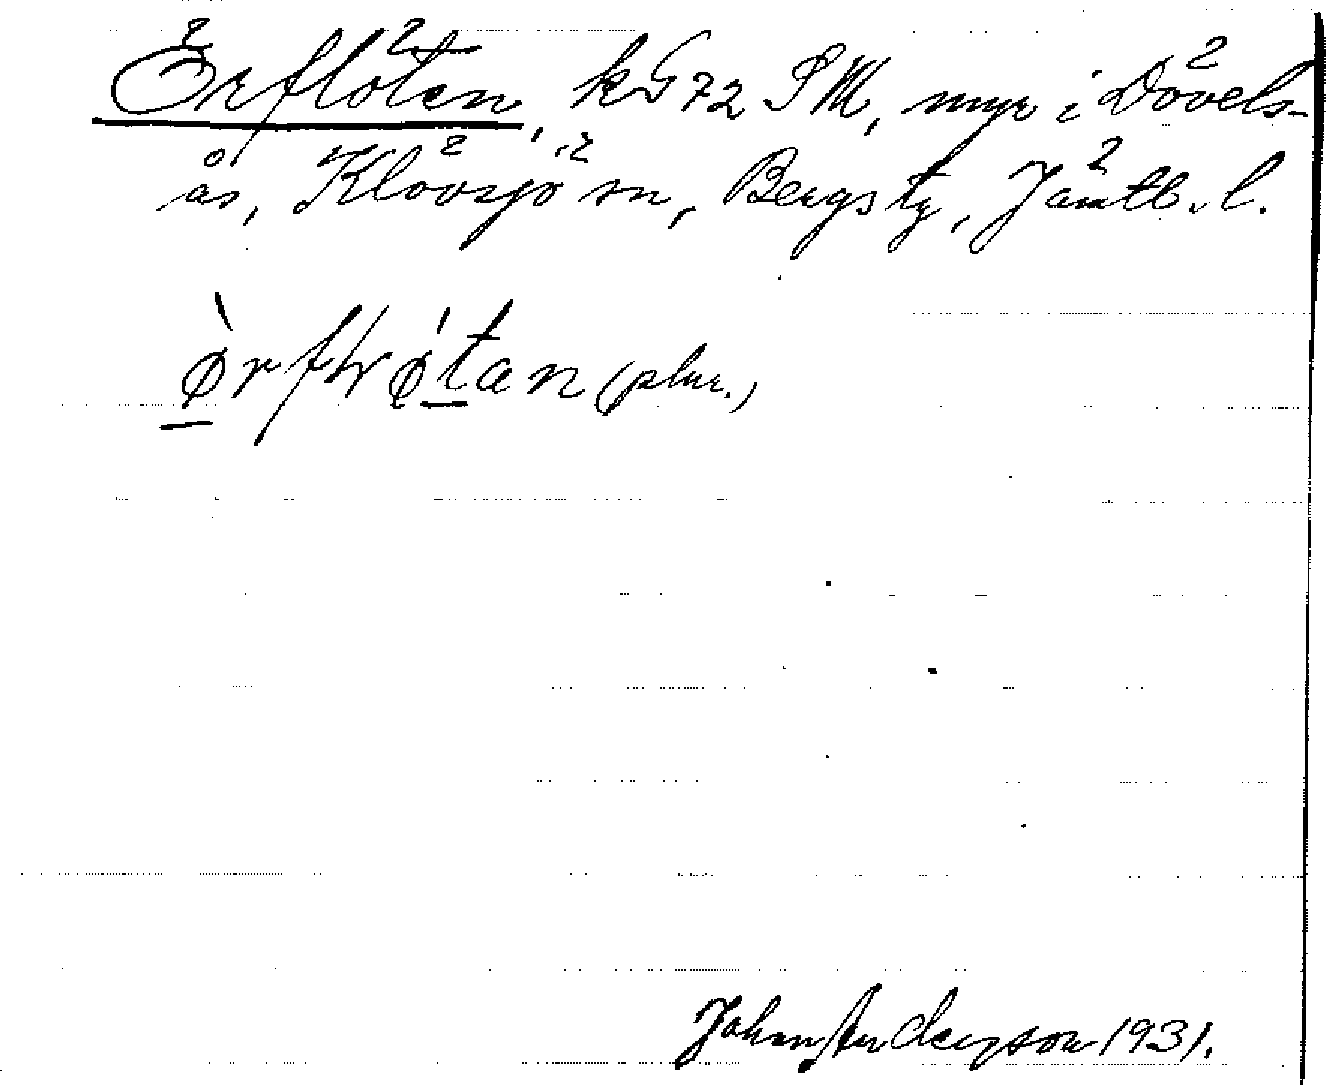 Örflöten, kG72 SM, myr i Dövels-
ås, Klövsjö sn, Bergs tg, Jämtl. l.
ørfłøtan (plur.)
Johan Andersson 1931.